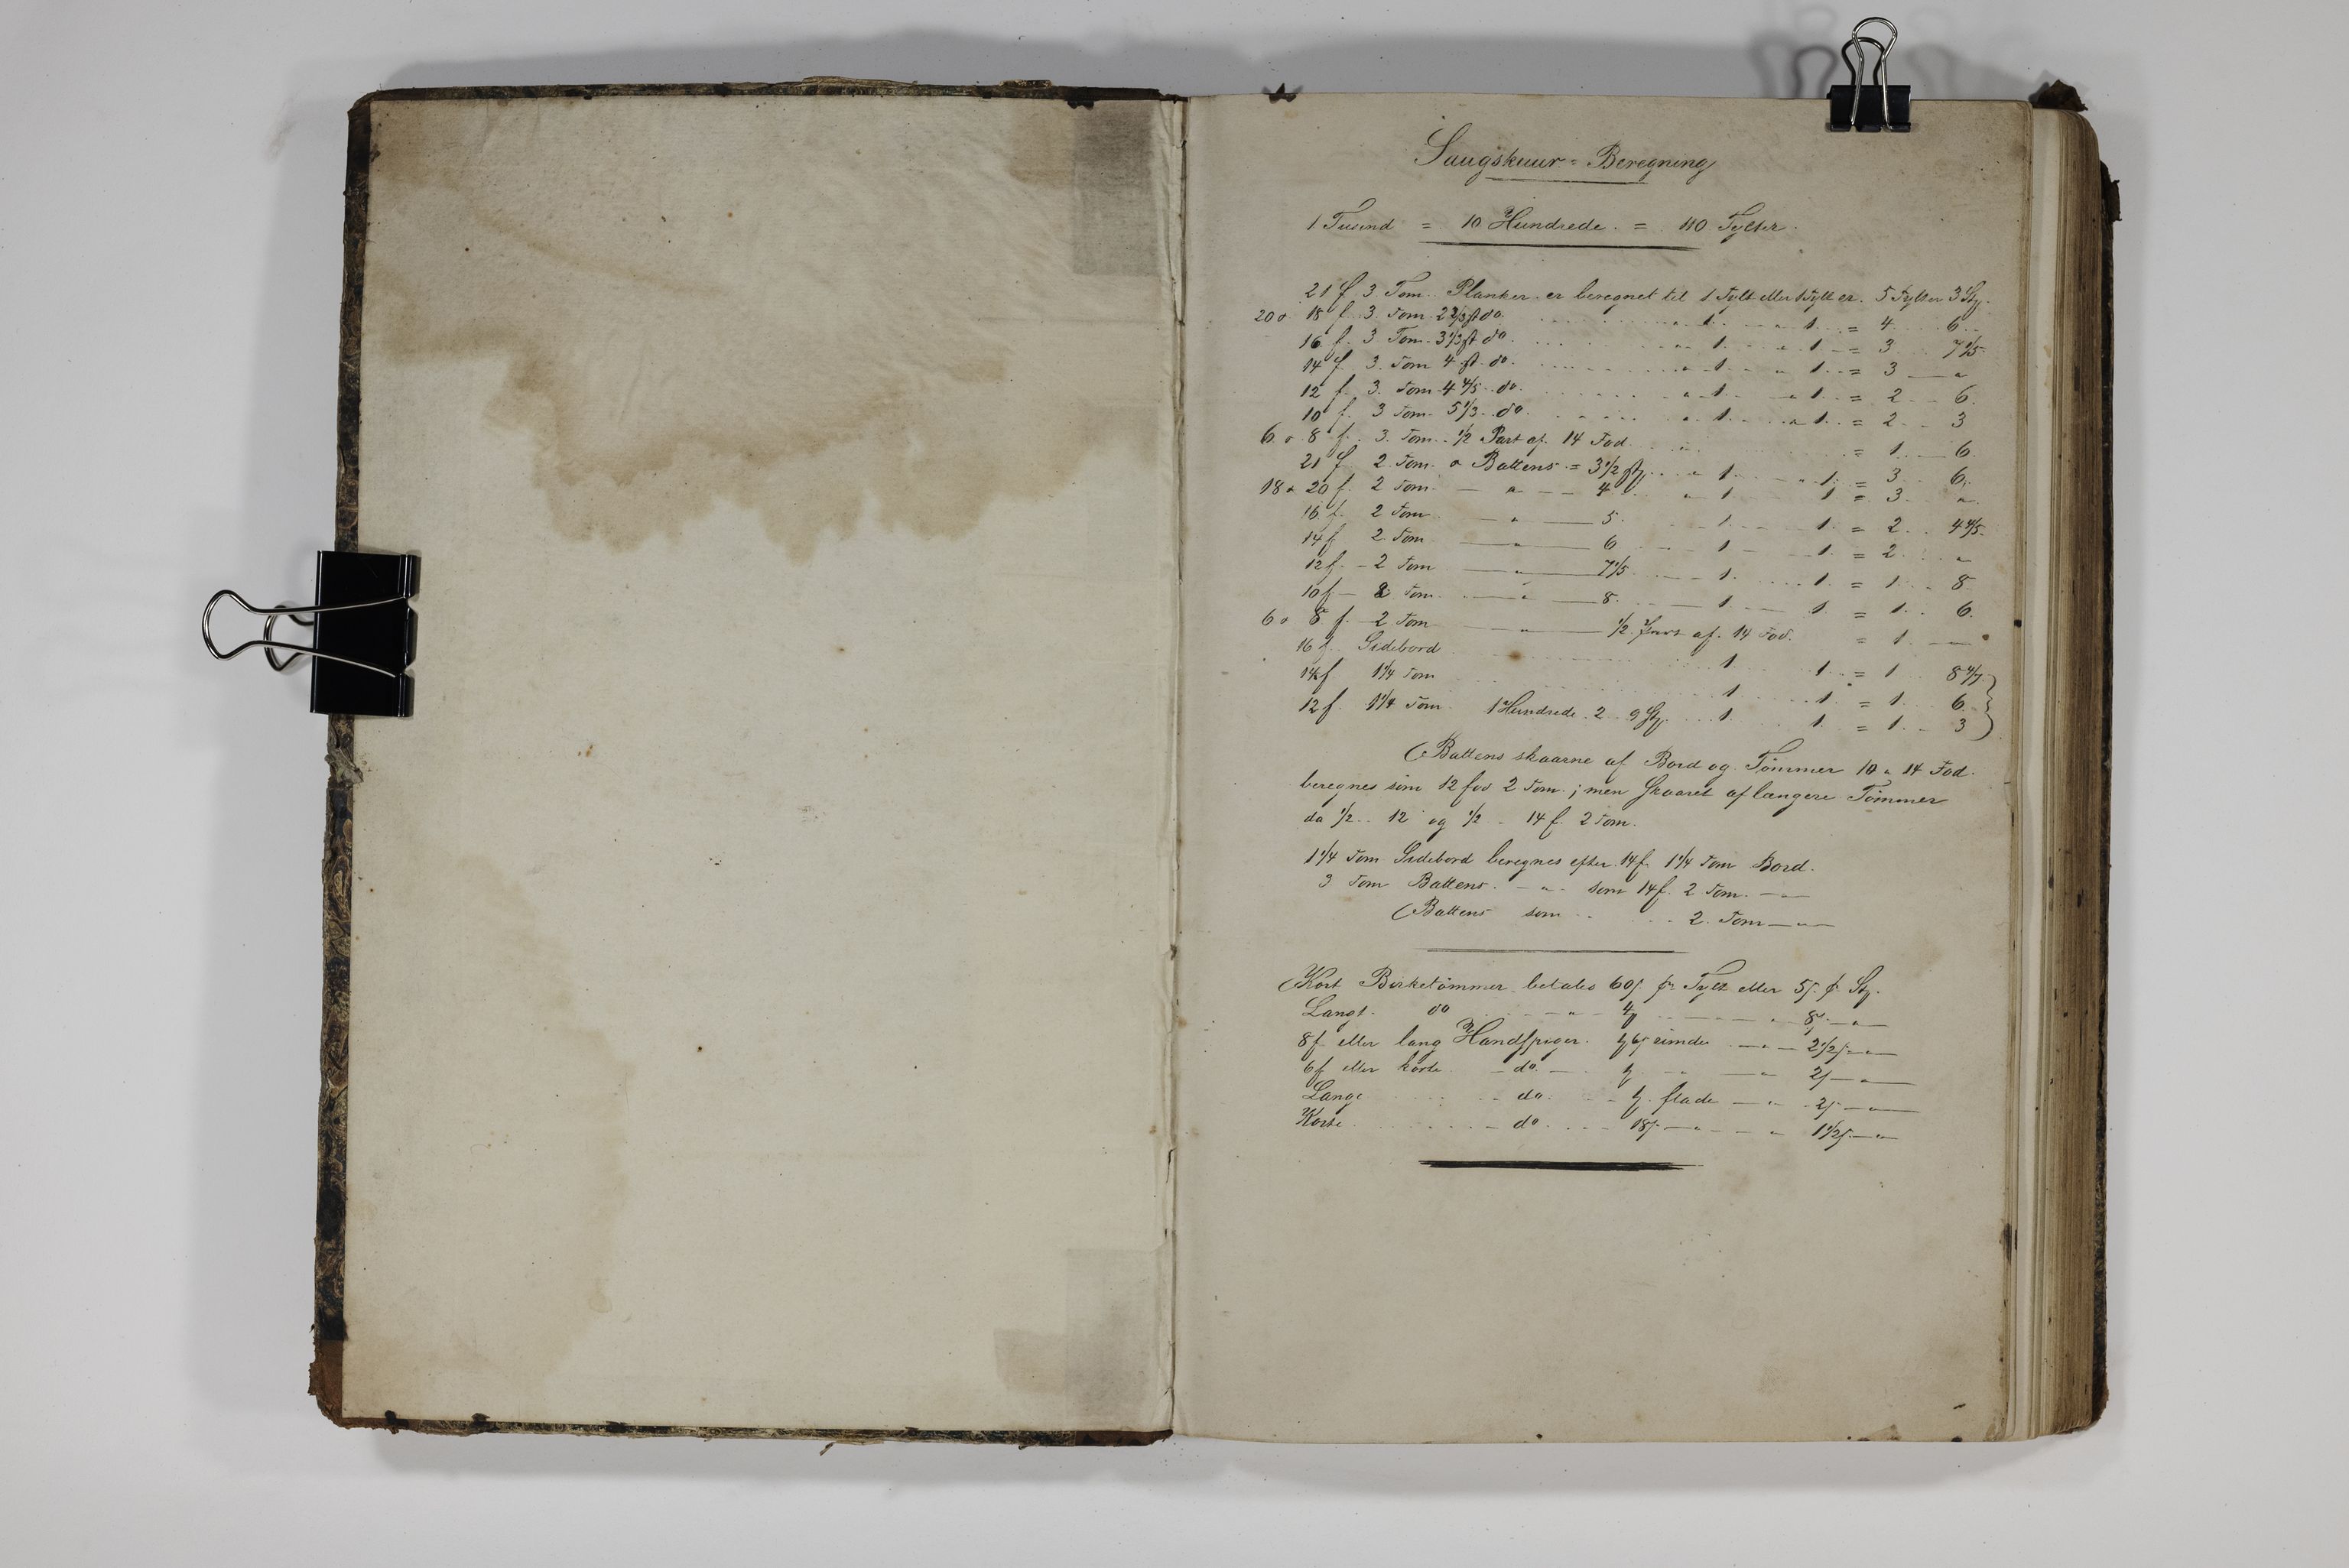 Saugskuur-Beregning
1 Tusind = 10 Hundrede. = 110 Tylter.
21 f 3 Tom. Planker er beregnet til 1 Tylt eller 1 Tylt er. 5 Tylter 3 St.
20 a 18 f. 3. Tom 2 2/3 st do. " 1. " 1. = 4. 6.
16 f. 3 Tom. 3 1/3 st do. " 1. " 1 = 3 7 1/5
14 f 3. Tom 4 st. do. " 1. " 1. = 3 "
12 f. 3. Tom 4 4/5 do. " 1. " 1 = 2 6.
10 f. 3 Tom. 5 1/3. do. " 1. " 1. = 2 3
6 a 8 f. 3. Tom. 1/2 Part af. 14 Fod. " = 1. 6.
21 f 2 Tom. a Battens = 3 1/2 st. " 1. 1. = 3 6.
18 a 20 f. 2 Tom. " 4 " 1 1 = 3 "
16 f. 2 Tom " 5. 1. 1. = 2. 4 4/5
14 f 2. Tom " 6 1 1. = 2 "
12 f. 2 Tom " 7 1/5 1. 1 = 1. 8
10 f 2 Tom. " 8. 1. 1 = 1. 6.
6 a 8 f. 2 Tom " 1/2. Part af. 14 Fod. = 1
16 f. Sidebord 1 1. = 1 8 4/7
14 f 1 1/4 Tom 1 1. = 1. 6.
12 f. 1 1/4 Tom. 1 Hundrede. 2 9 St. 1. 1. = 1. 3
Battens skaarne af Bord og Tømmer 10 a 14 Fod.
beregnes som 12 fod 2 Tom.; men skaaret af længere Tømmer
da 1/2. 12 og 1/2 - 14 f. 2 Tom.
1 1/4 Tom Sidebord beregnes efter 14 f. 1 1/4 Tom Bord.
3 Tom Battens. " som 14 f. 2 Tom.
Battens som 2. Tom "
Kort Birketømmer betales 60 f. pr Tylt eller 5 f. pr St.
Langt. do " 8 "
8 f eller lang Handspiger. rimde " 2 1/2 "
6 f eller korte do. " " 2 "
Lange do. flade " 2 "
Korte do. 18 " " 1 1/2 "